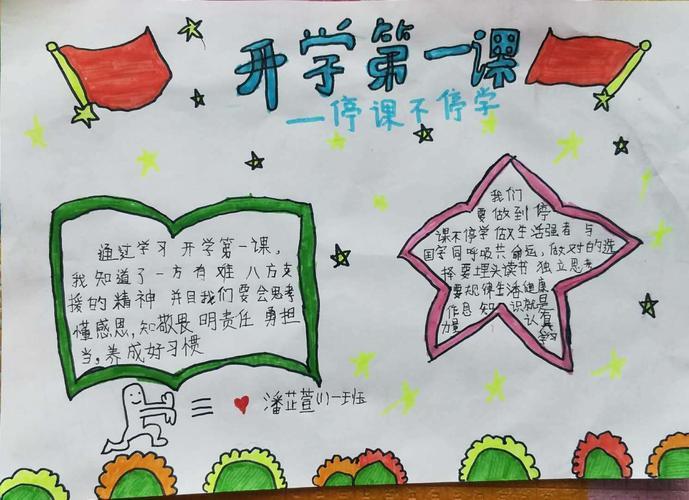 开学第一课
—停课不停学
通过学习开学第一课,
我知道了一方有难八方支
援的精神 并且我们要会思考
懂感恩,知敬畏 明责任 勇担
当,养成好习惯
我们
要做到停
课不停学做生活强者 与
国家同呼吸共命运,做对的选
择要埋头读书 独立思考
要规律生活健康
作息 知识就是
力量 认真
学习
潘芷萱(1)一班